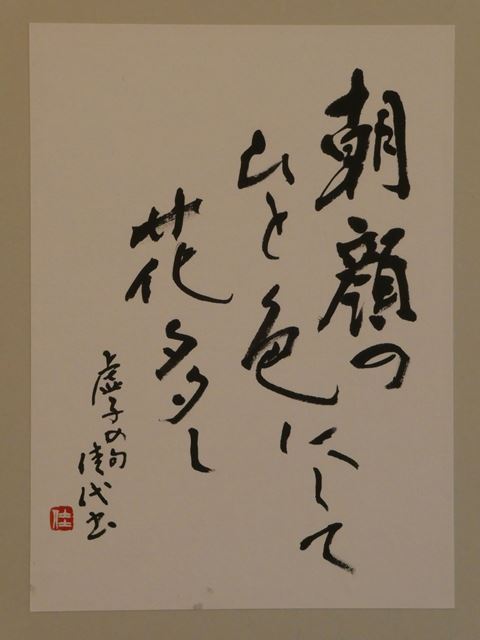 朝顔の
ひと色にして
花多し
虚子の句
佳代書
佳